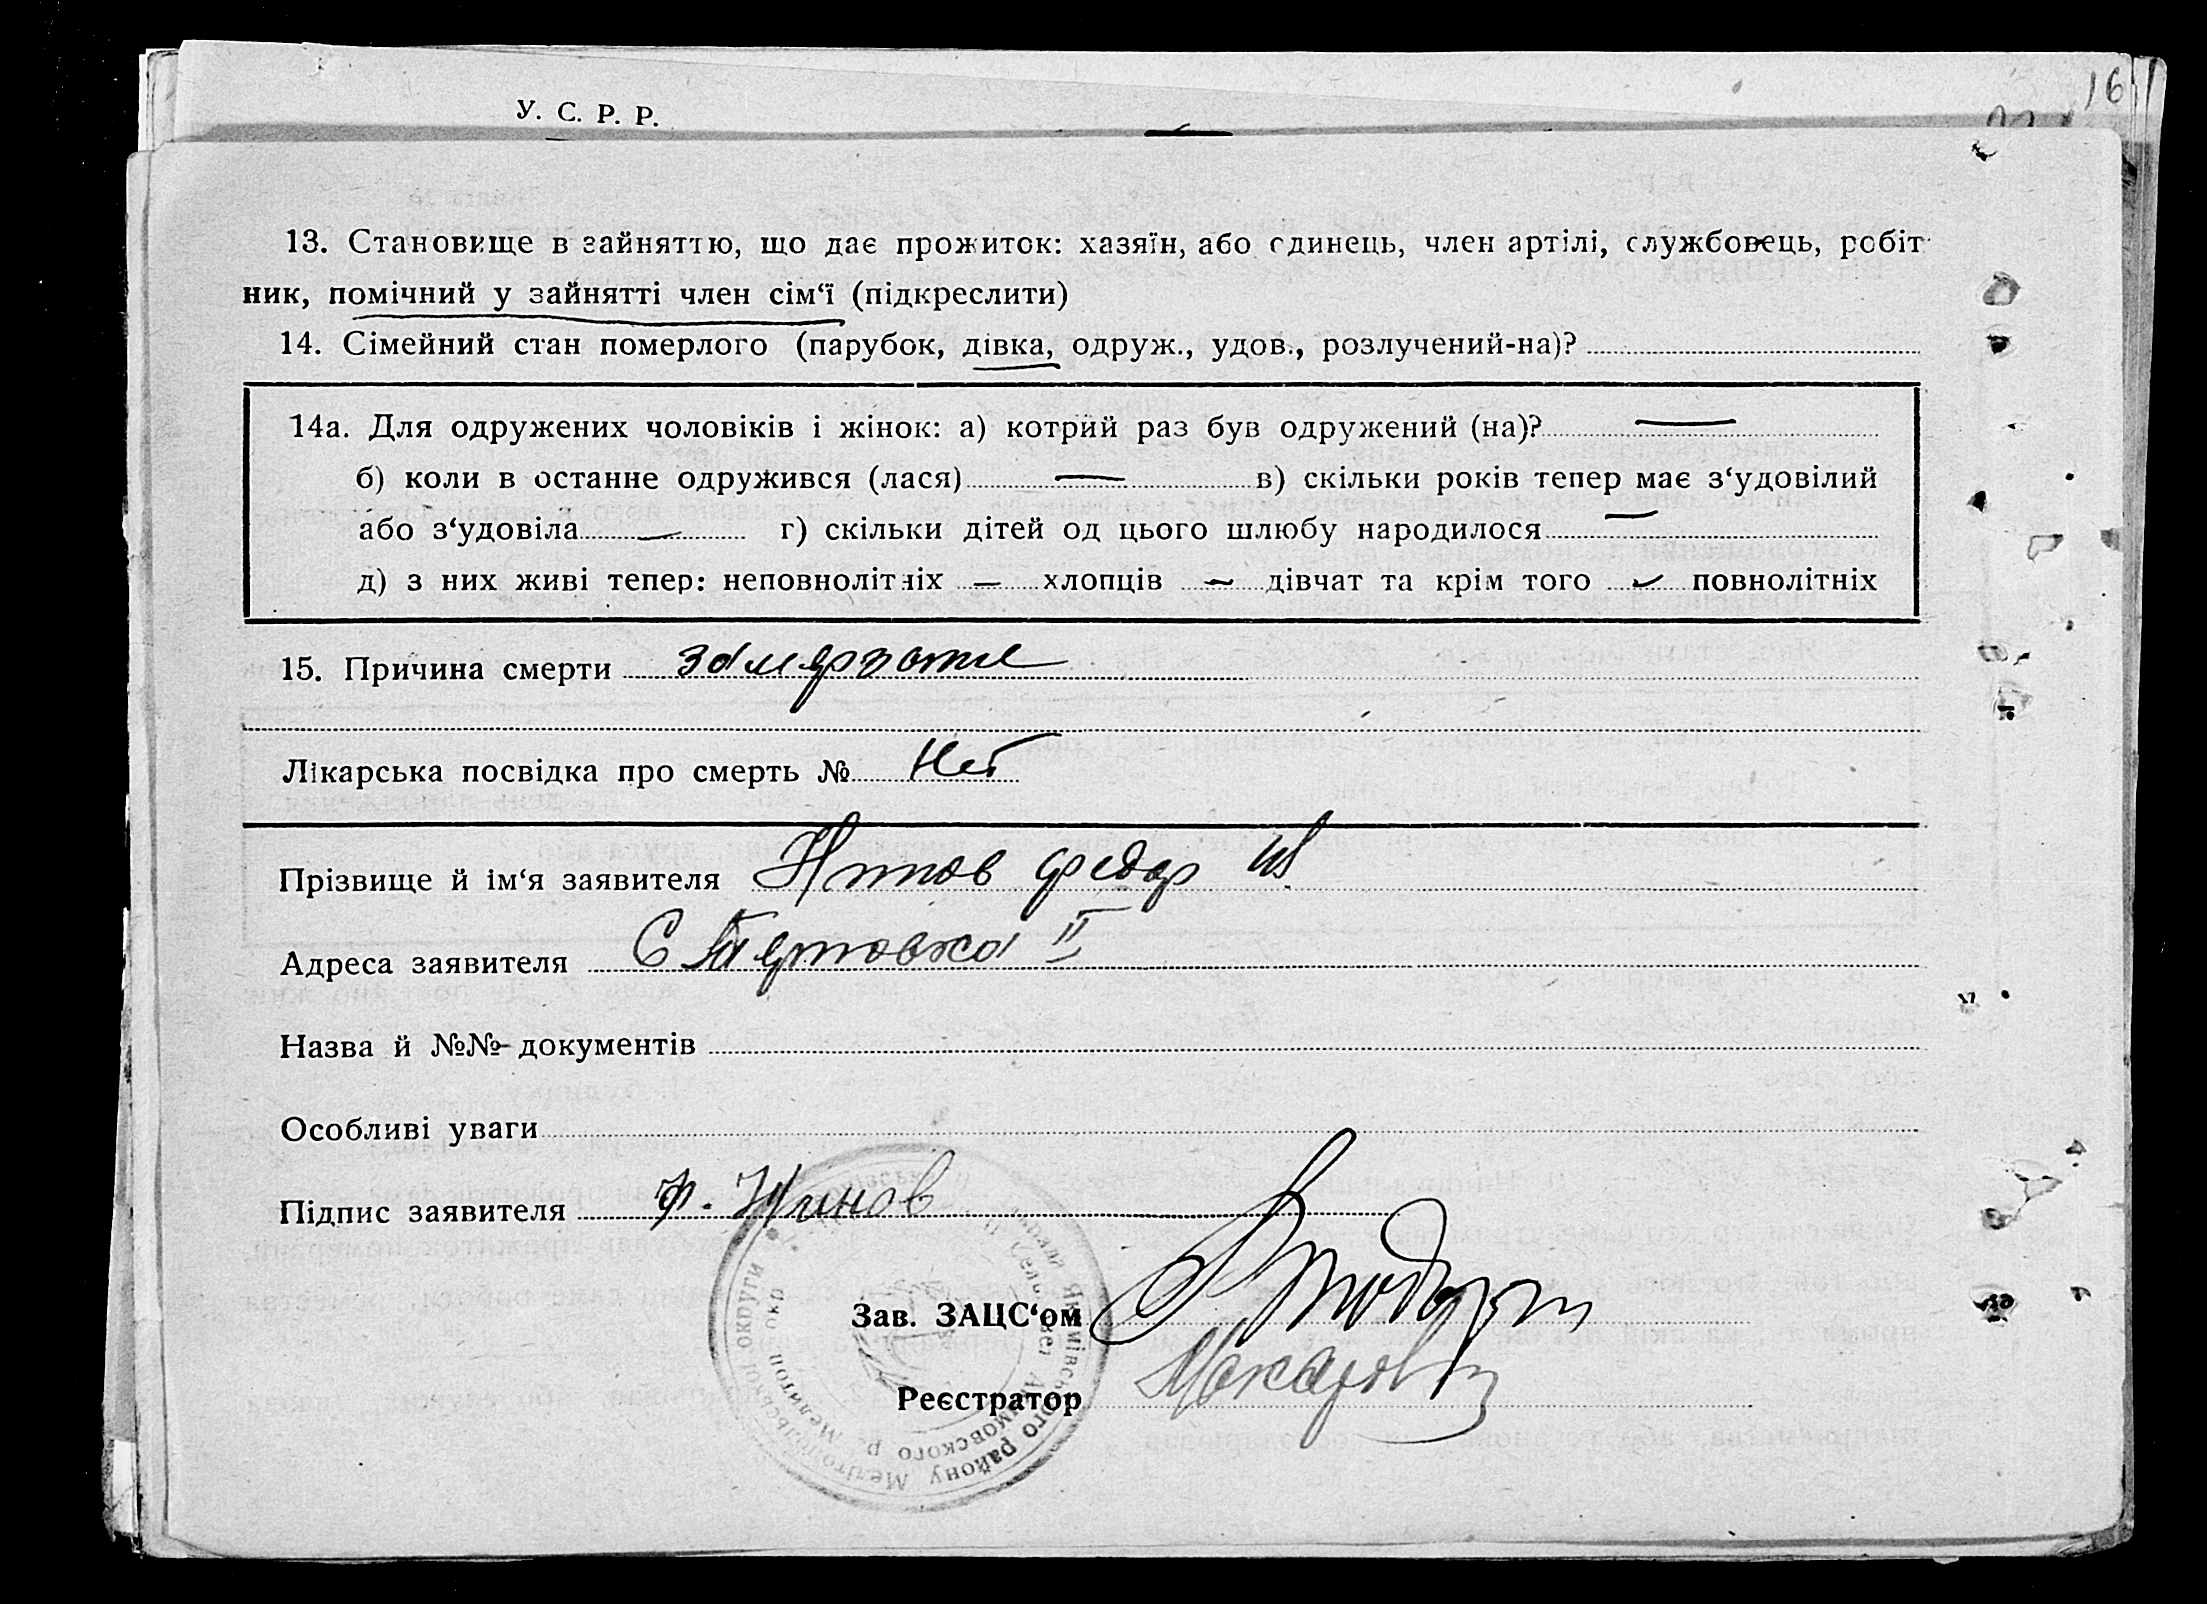 16
У. С. Р. Р.
13. Становище в зайняттю, що дає прожиток: хазяїн, або єдинець, член артілі, службовець, робіт
ник, помічний у зайнятті член сім‘ї (підкреслити)
14. Сімейний стан померлого (парубок, дівка, одруж., удов., розлучений-на)?
14а. Для одружених чоловіків і жінок: а) котрий раз був одружений (на)? —
б) коли в останне одружився (лася) — в) скільки років тепер має з‘удовілий
або з‘удовіла — г) скільки дітей од цього шлюбу народилося —
д) з них живі тепер: неповнолітніх — хлопців — дівчат та крім того — повнолітніх
15. Причина смерти
Лікарська посвідка про смерть № Нет
Прізвище й ім‘я заявителя федор
Адреса заявителя С II
Назва й №№ документів
Особливі уваги
Підпис заявителя Ф.
Зав. ЗАЦС‘ом
Реєстратор
Якимівського району Мелітопільської округи
Акимовского р. Мелитоп. окр.